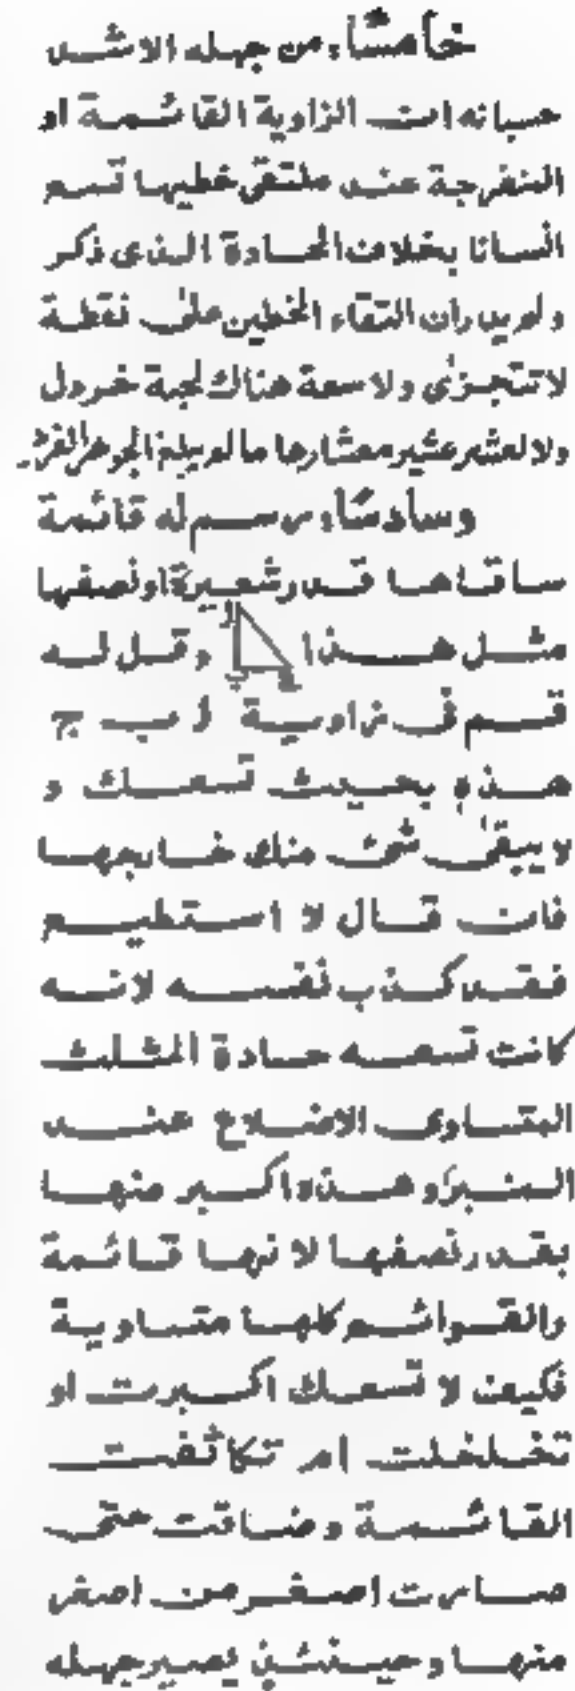 خامسًا، من جهله الاشد
حسبانه ان الزاوية القائمة او
المنفرجة عند ملتقى خطيها تسع
انسانا بخلاف الحادة الذى ذكر
ولم يدر ان التقاء الخطين على نقطة
لا تتجزى ولا سعة هناك لحبة خردل
ولا لعشر عشير معشارها ما لم يبلغ الجوهر الفرد
وسادسًا، رسم له قائمة
ساقاها قدر شعيرة او نصفها
مثل هذا وقل له
قم فى زاوية ا ب ج
هذه بحيث تسعك و
لا يبقى شئ منك خارجها
فان قال لا استطيع
فقد كذب نفسه لانه
كانت تسعه حادة المثلث
المتساوى الاضلاع عند
المنبر وهذه اكبر منها
بقدر نصفها لانها قائمة
والقوائم كلها متساوية
فكيف لا تسعك اكبرت او
تخلخلت ام تكاثفت
القائمة وضاقت حتى
صارت اصغر من اصغر
منها وحينئذ يصير جهله